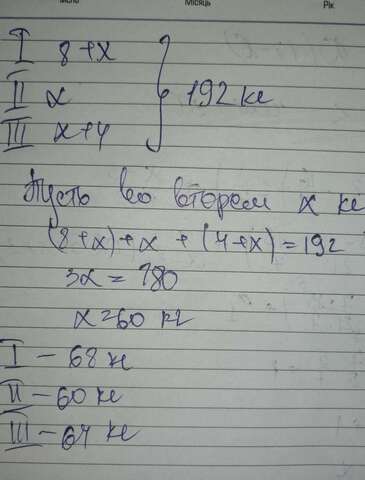 Число Місяць Рік
I 8+x
II x 192 кг
III x+4
Пусть во втором x кг
(8+x)+x+(4+x)=192
3x=180
x=60 кг
I – 68 кг
II – 60 кг
III – 64 кг